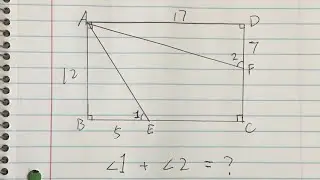 17
A D
2 7
F
12
1
B 5 E C
∠1 + ∠2 = ?